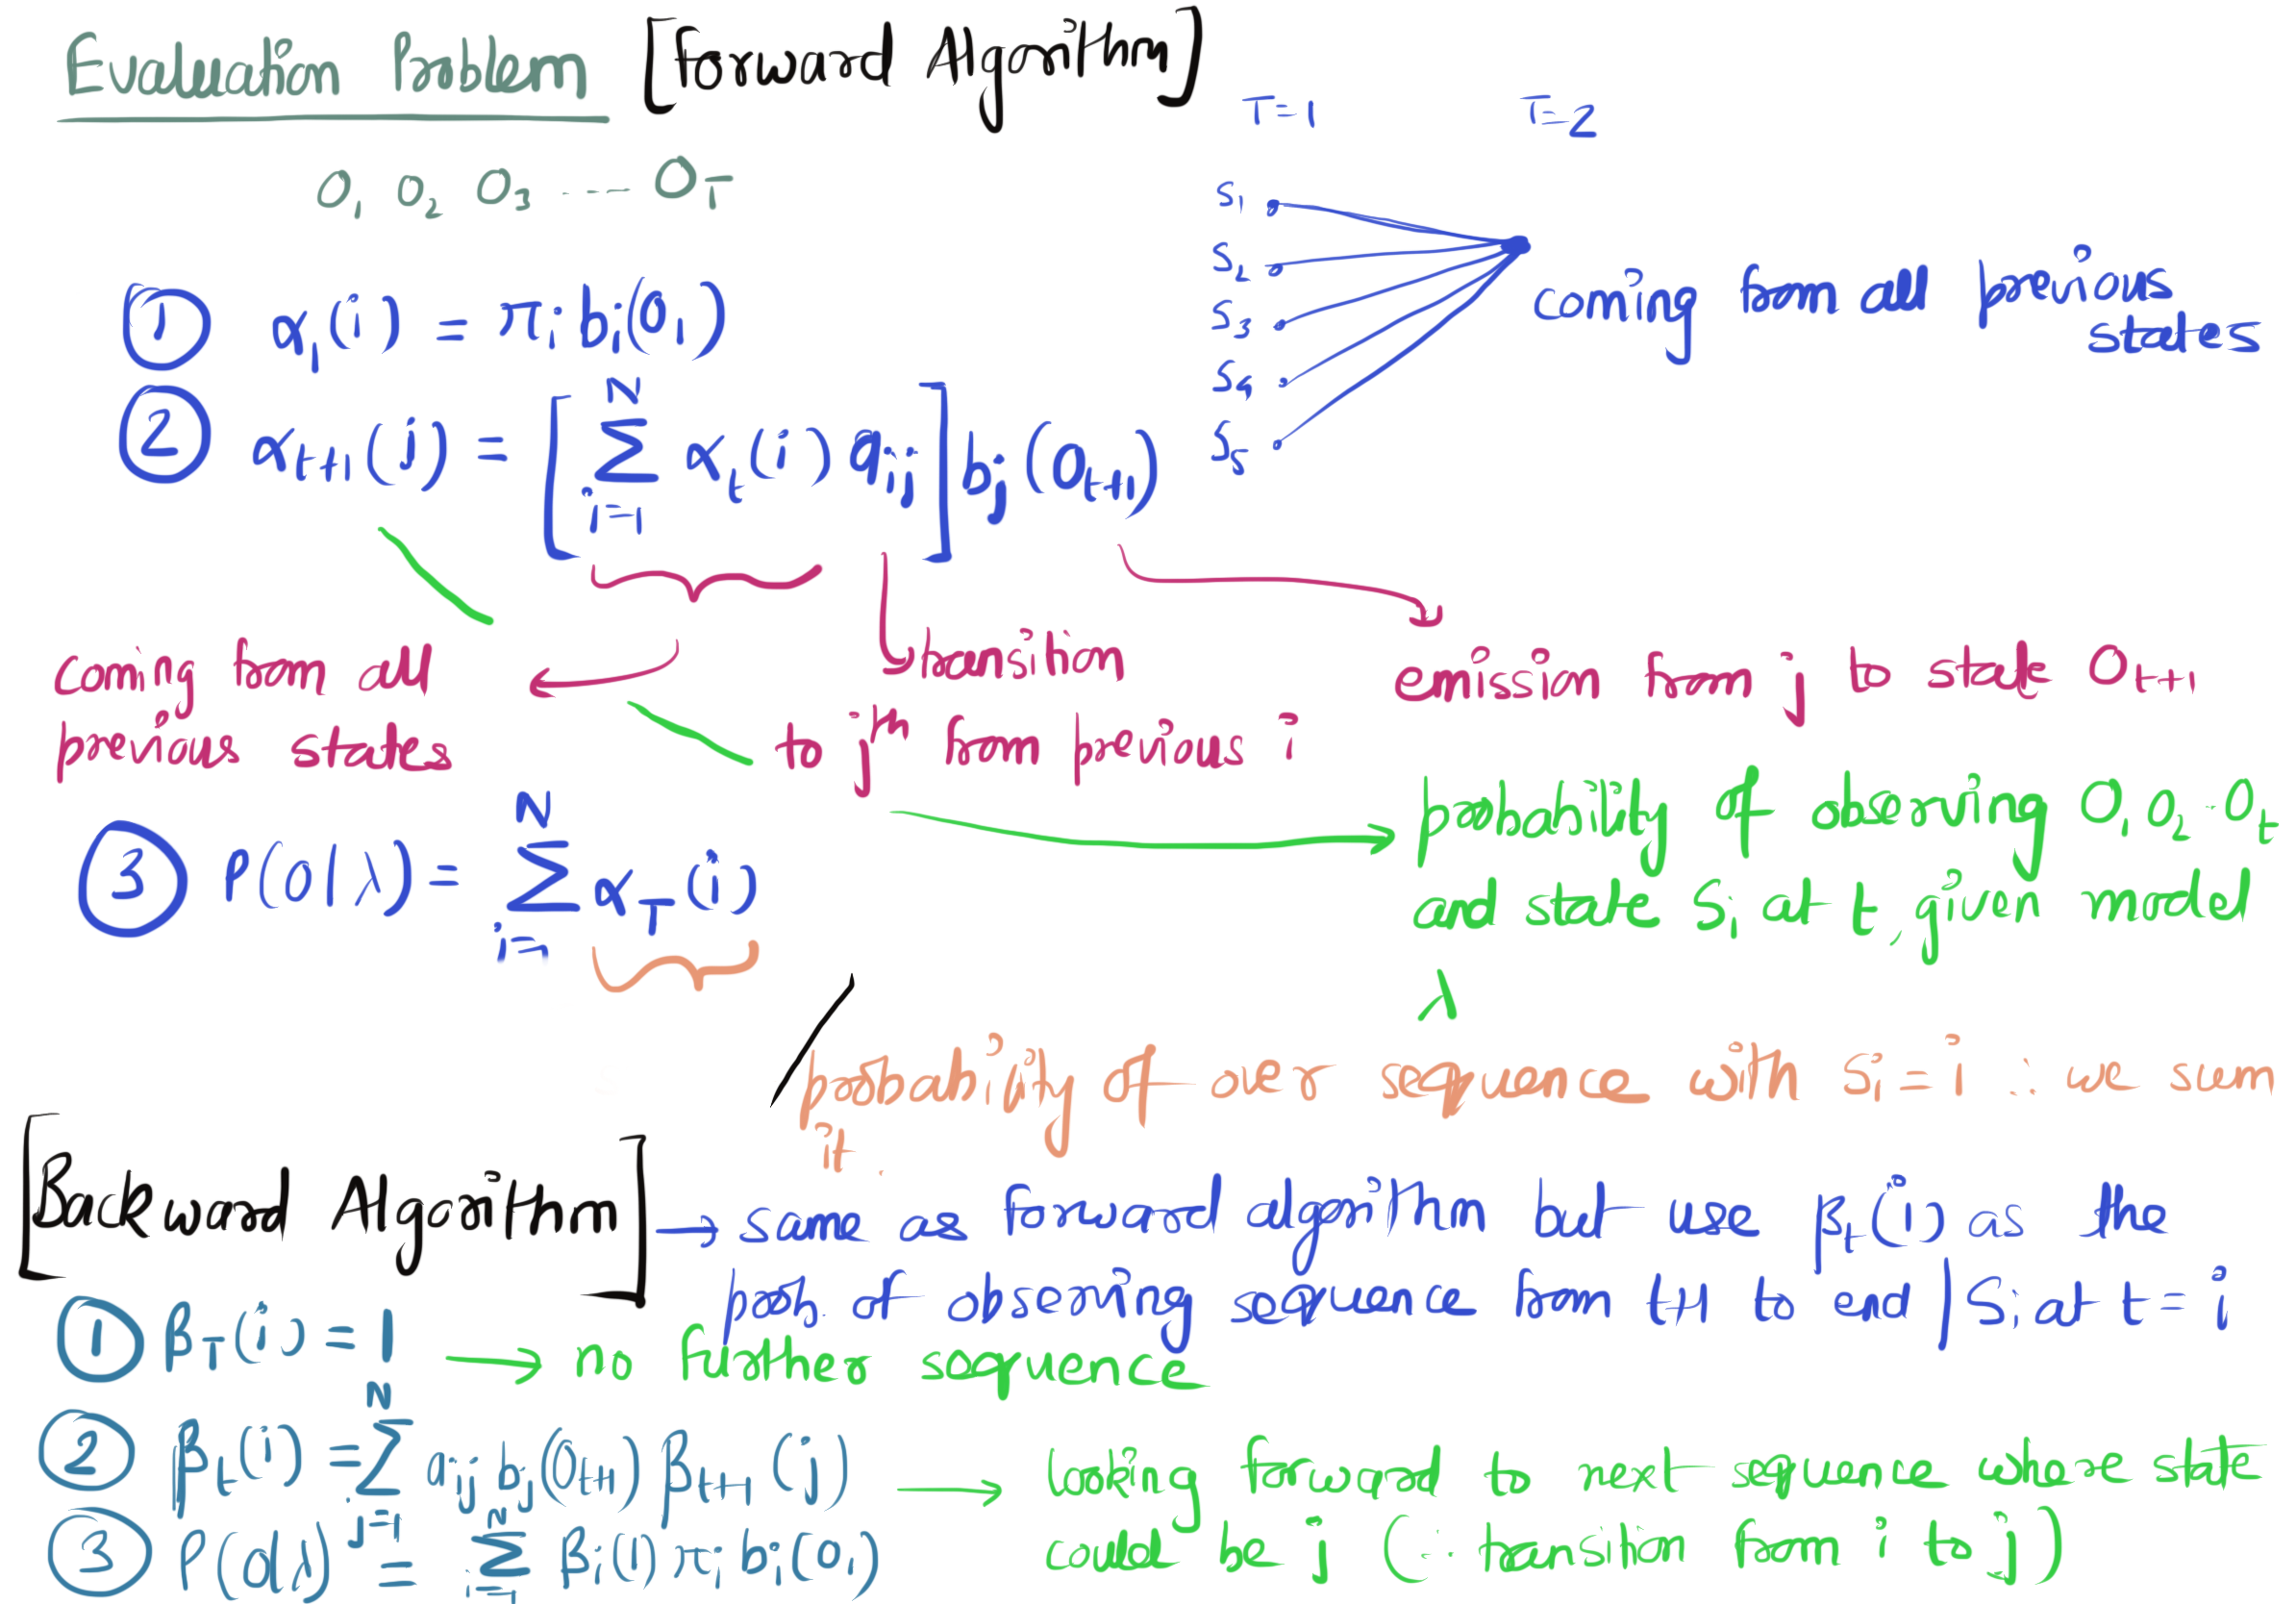 Evaluation Problem [Forward Algorithm]
T=1 T=2
O₁ O₂ O₃ ---- O_T
S₁
S₂
S₃
S₄
S₅
coming from all previous
states
① α₁(i) = πᵢ bᵢ(O₁)
② α_{t+1}(j) = [ Σ_{i=1}^{N} α_t(i) a_{ij} ] b_j(O_{t+1})
coming from all
previous states
transition
to jᵗʰ from previous i
emission from j to state O_{t+1}
③ P(O|λ) = Σ_{i=1}^{N} α_T(i)
probability of observing O₁ O₂ .. O_t
and state Sᵢ at t, given model
λ
probability of over sequence with Sᵢ = i ∴ we sum
it.
[Backward Algorithm] → same as forward algorithm but use β_t(i) as the
prob. of observing sequence from t+1 to end | Sᵢ at t = i
① β_T(i) = 1 → no further sequence
② β_t(i) = Σ_{j=1}^{N} a_{ij} b_j(O_{t+1}) β_{t+1}(j) → looking forward to next sequence where state
could be j (∵ transition from i to j)
③ P(O|λ) = Σ_{i=1}^{N} βᵢ(1) πᵢ bᵢ(O₁)